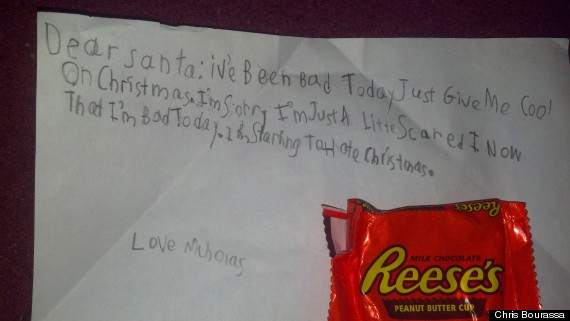 Dear santa: iv'e Been Bad Today Just Give Me Cool
On Christmas. I'm Sorry I'm Just A Little Scared I Now
That I'm Bad Today. I'm Starting To Hate Christmas.
Love Nicholas
Reese's
MILK CHOCOLATE
Reese's
PEANUT BUTTER CUP
Chris Bourassa